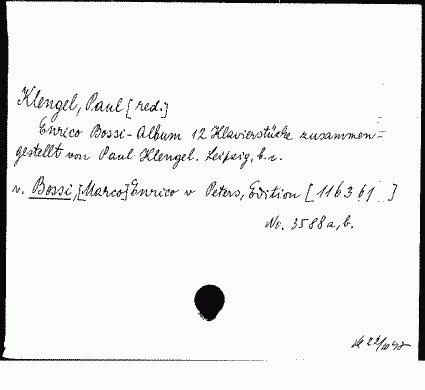 Klengel, Paul [red.]
Enrico Bossi-Album 12 Klavierstücke zusammen=
gestellt von Paul Klengel. Leipzig, b. r.
v. Bossi, [Marco] Enrico v Peters, Edition [116361]
No. 3588a, b.